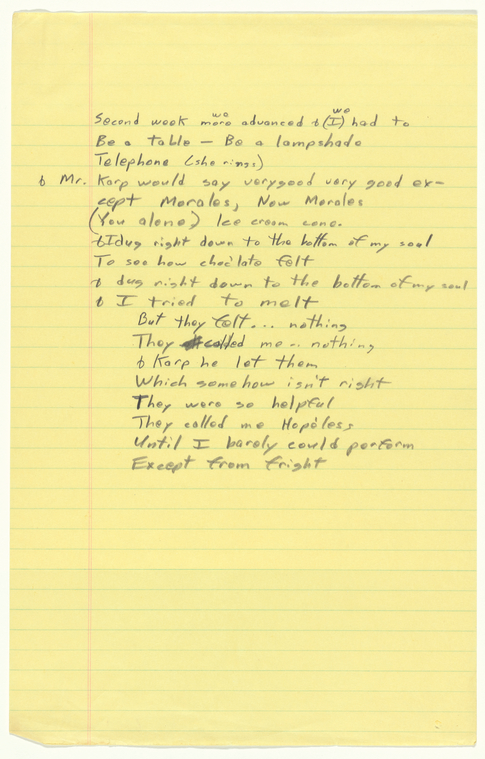 we we
Second week more advanced & (I) had to
Be a table – Be a lampshade
Telephone (she rings)
& Mr. Karp would say very good very good ex-
cept Morales, Now Morales
(You alone) Ice cream cone.
& I dug right down to the bottom of my soul
To see how choc'late felt
& dug right down to the bottom of my soul
& I tried to melt
But they felt... nothing
They called me .. nothing
& Karp he let them
Which somehow isn't right
They were so helpful
They called me Hopeless
Until I barely could perform
Except from fright